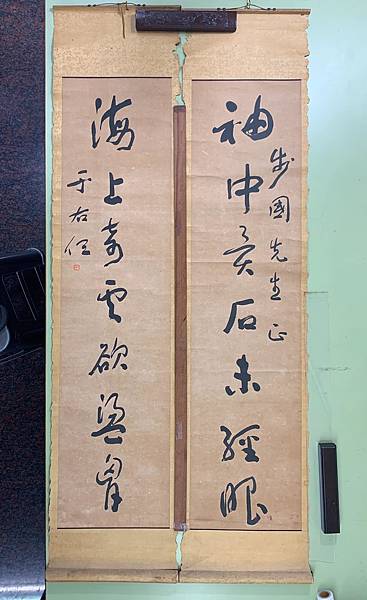 步國先生正
袖中異石未經眼
海上奇雲欲盪胷
于右任